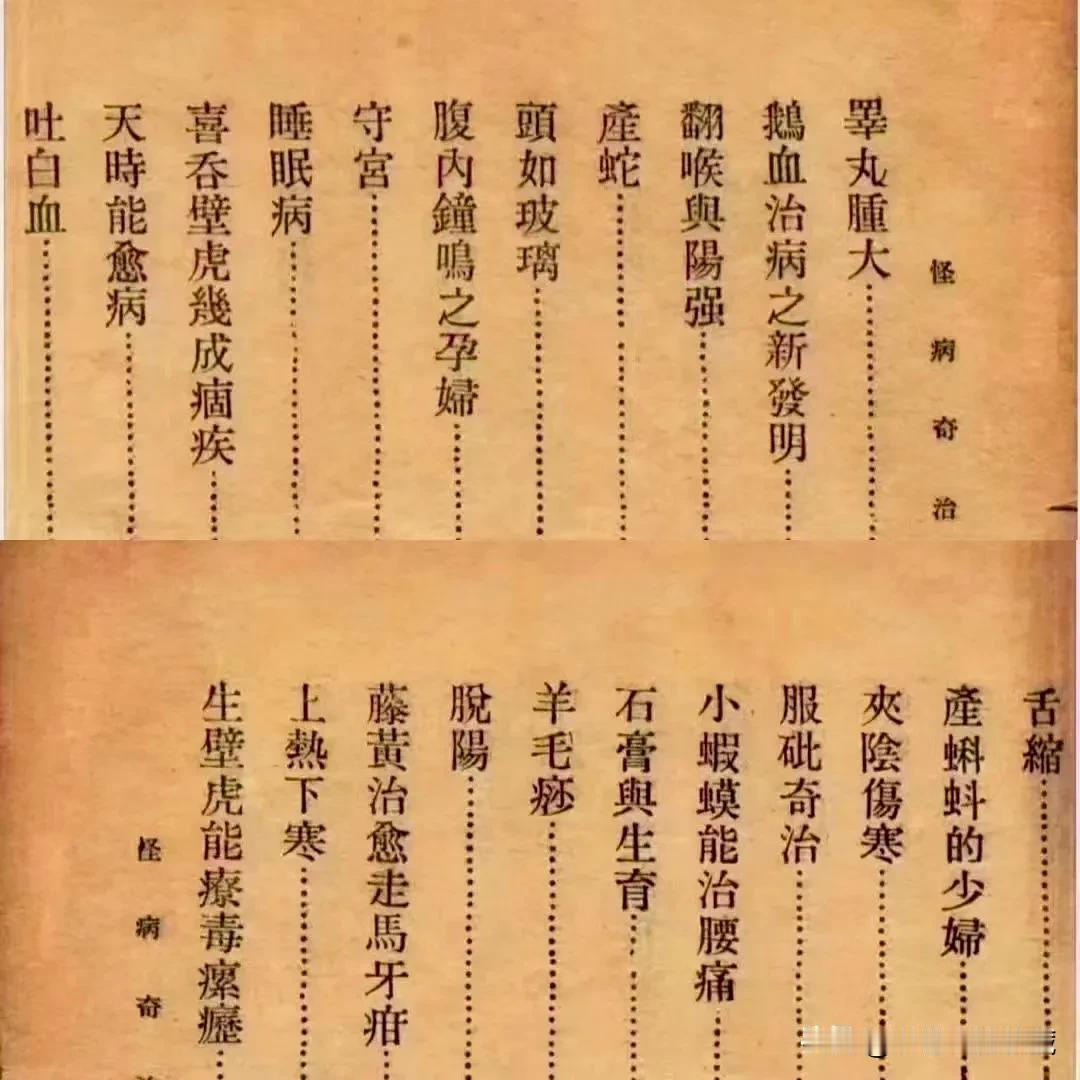 怪病奇治
睪丸腫大
鵝血治病之新發明
翻喉與陽强
產蛇
頭如玻璃
腹內鐘鳴之孕婦
守宮
睡眠病
喜吞壁虎幾成痼疾
天時能愈病
吐白血
舌縮
產蝌蚪的少婦
夾陰傷寒
服砒奇治
小蝦蟆能治腰痛
石膏與生育
羊毛痧
脫陽
藤黃治愈走馬牙疳
上熱下寒
生壁虎能療毒瘰癧
怪病奇